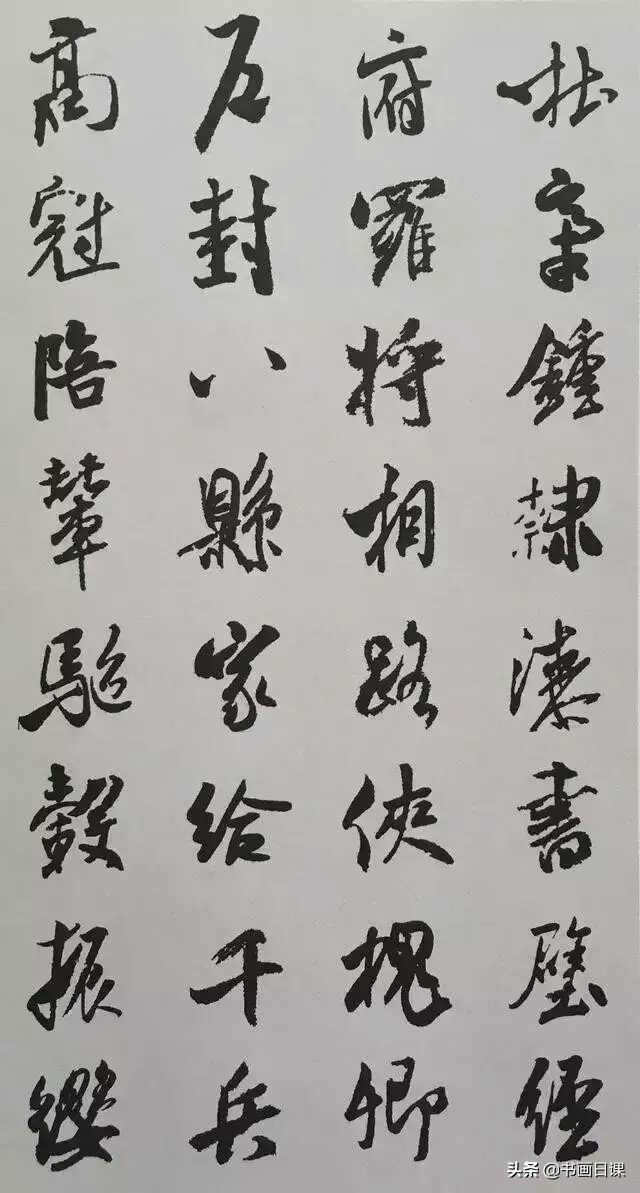 杜稾鍾隸漆書壁經
府羅將相路俠槐卿
戶封八縣家給千兵
高冠陪輦驅轂振纓
头条@书画日课